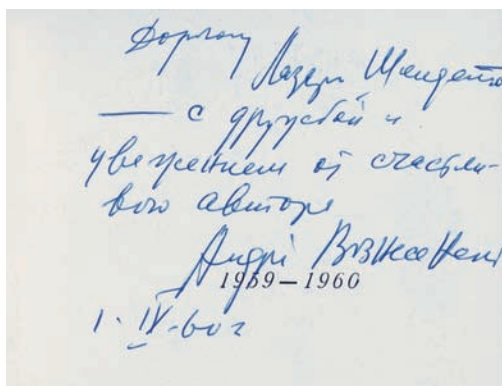 Дорогому
Лазарю
— с дружбой и
уважением от счастли-
вого автора
Андрей Вознесенский
1959–1960
1. IV. 60 г